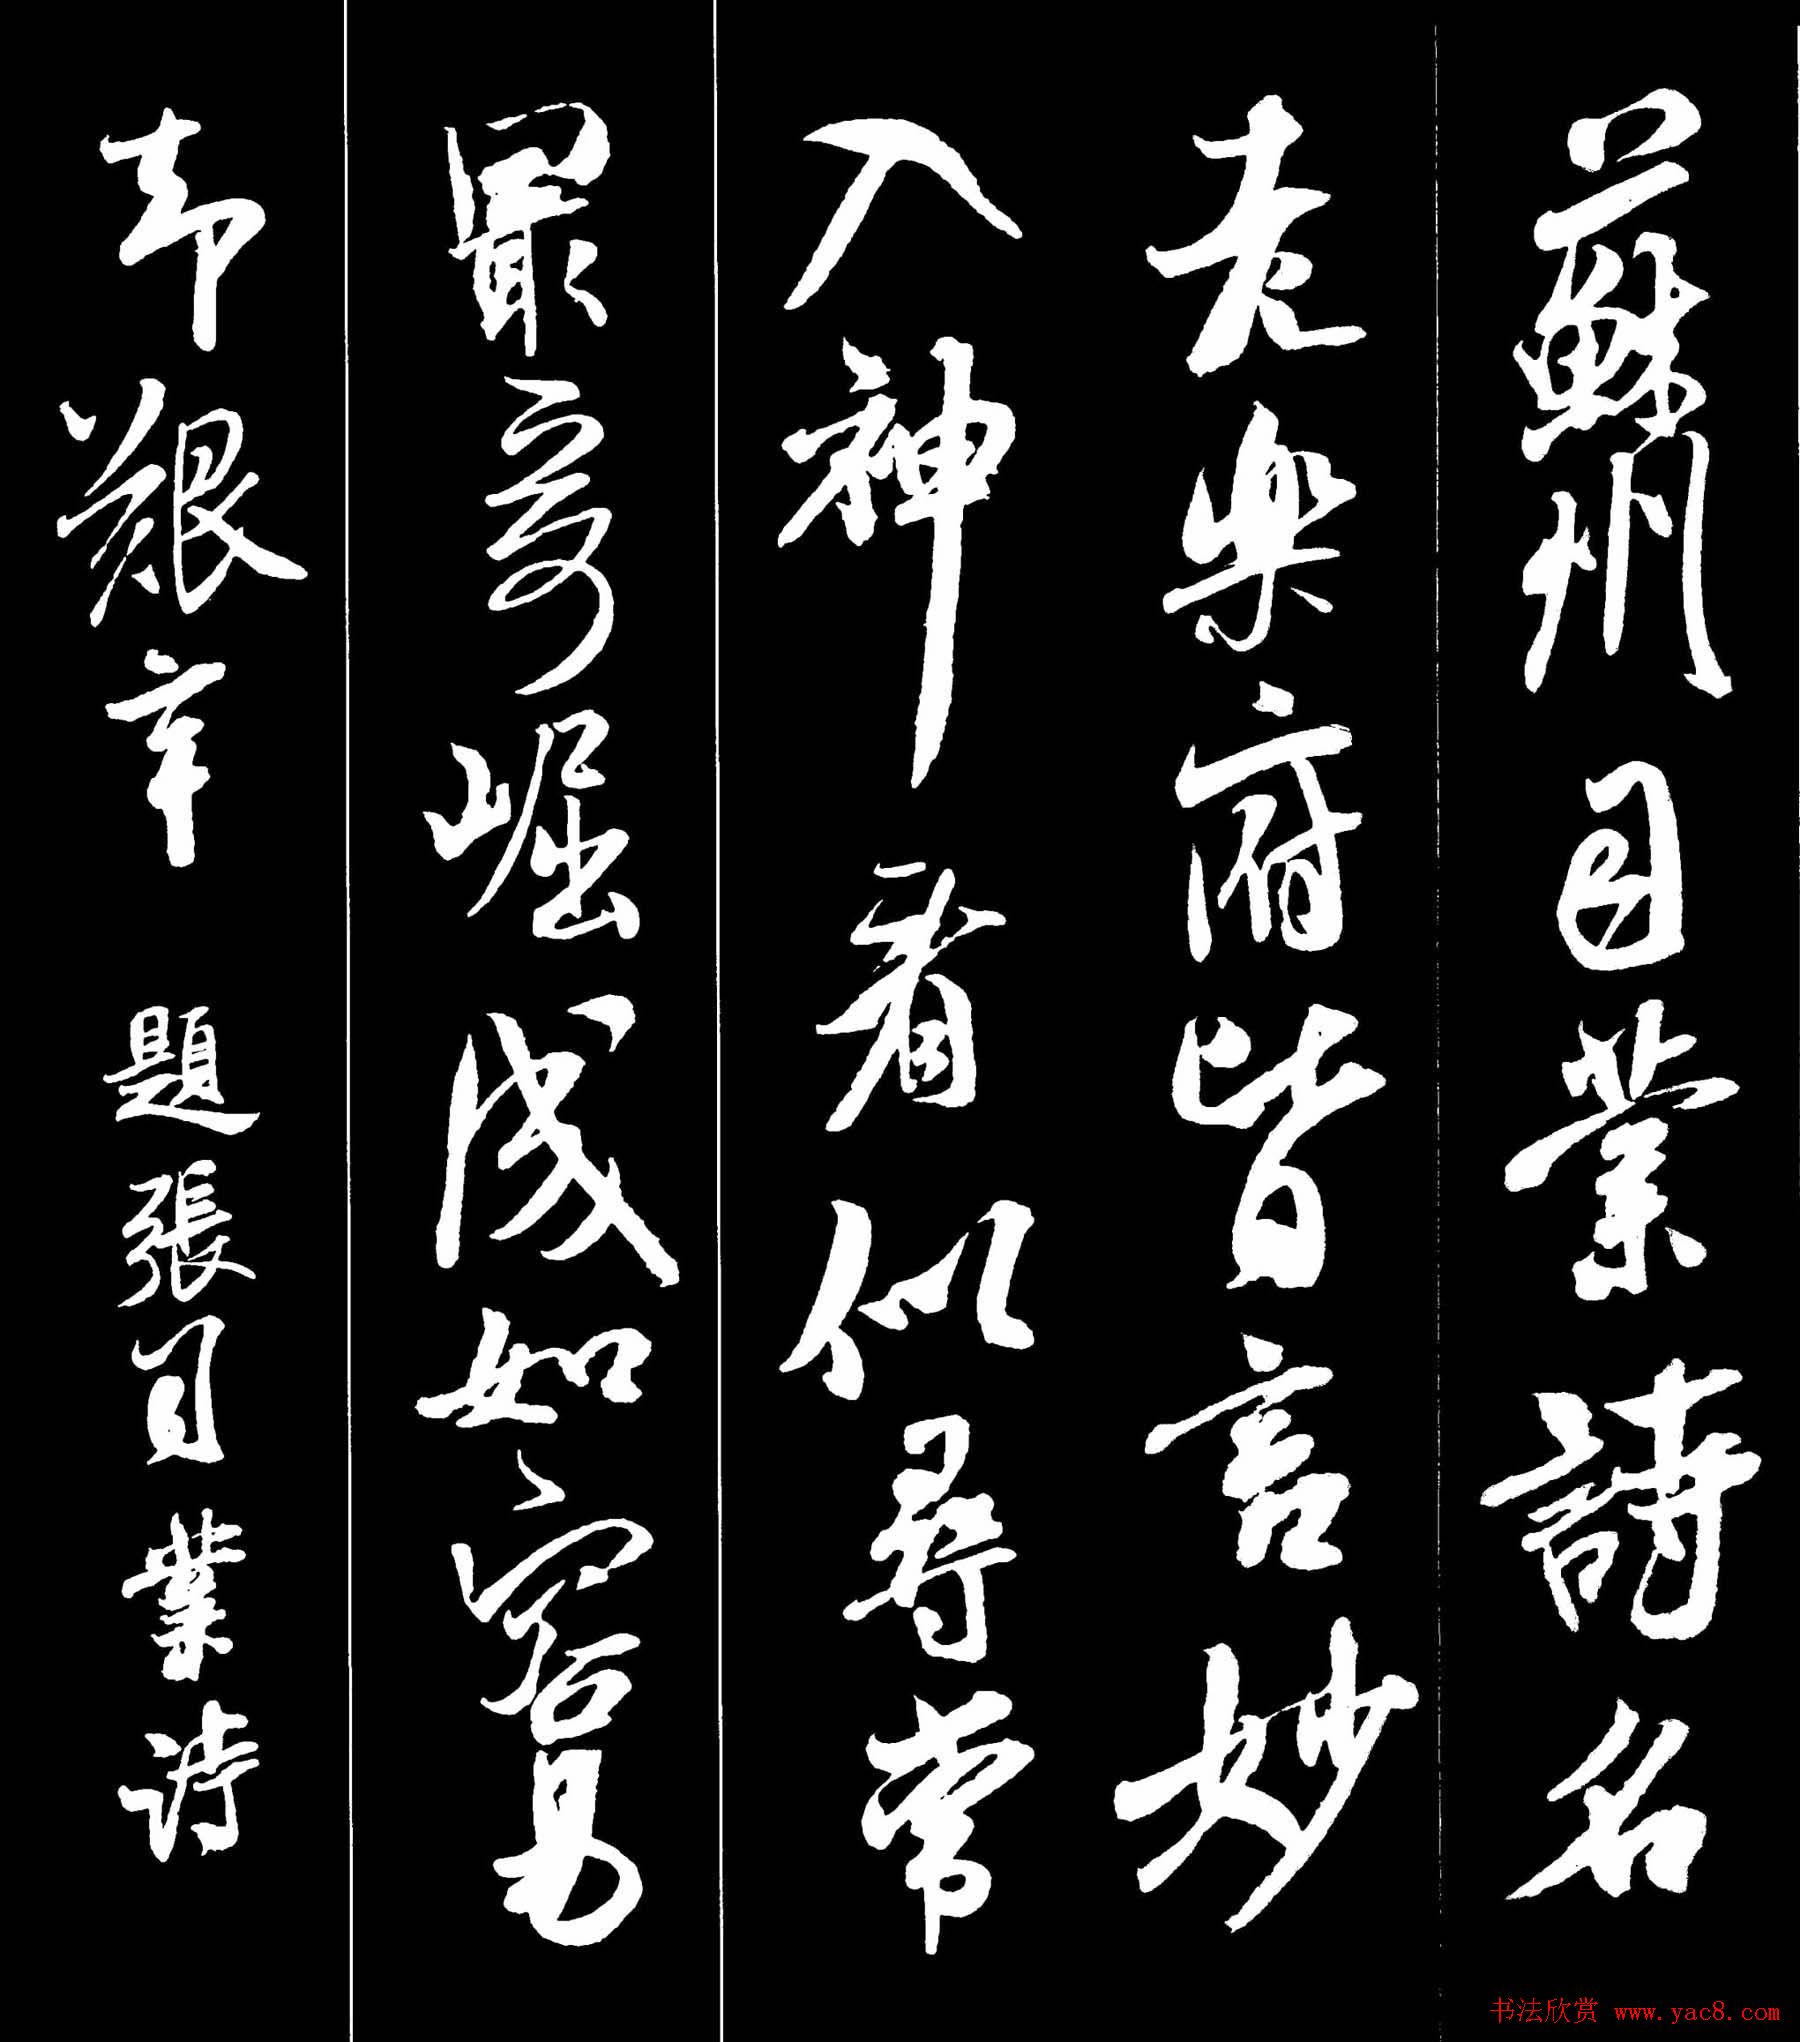 蘇州司業詩名
老樂府皆言妙
入神看似尋常
最奇崛成如容易
却艱辛 題張司業詩
书法欣赏 www.yac8.com